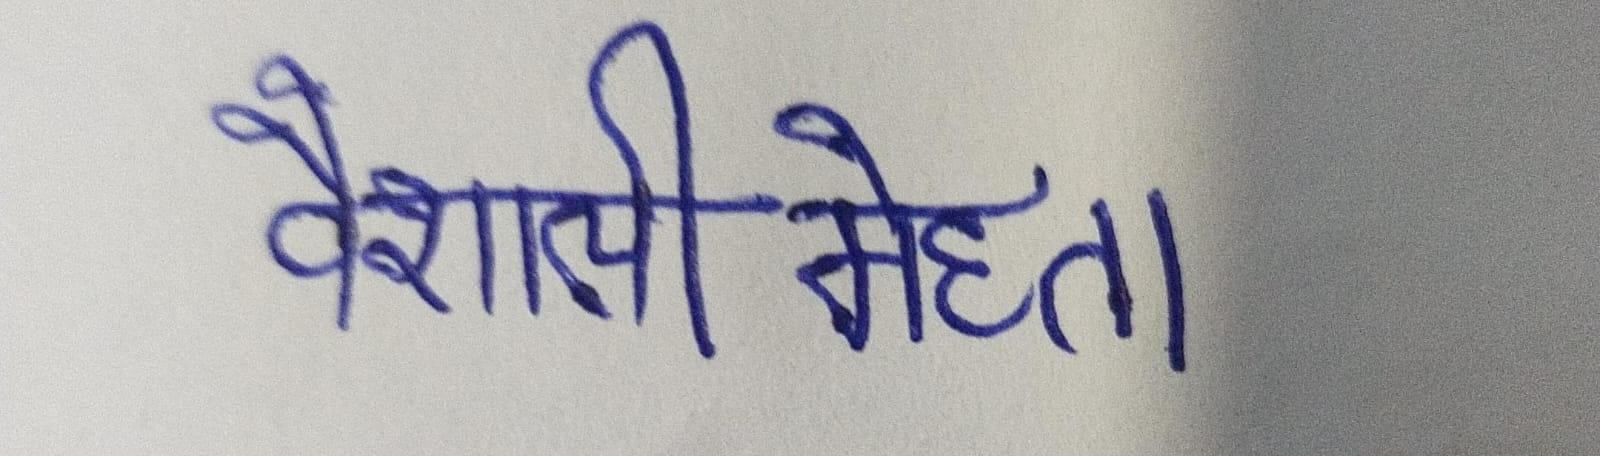 वैशाली मेहता